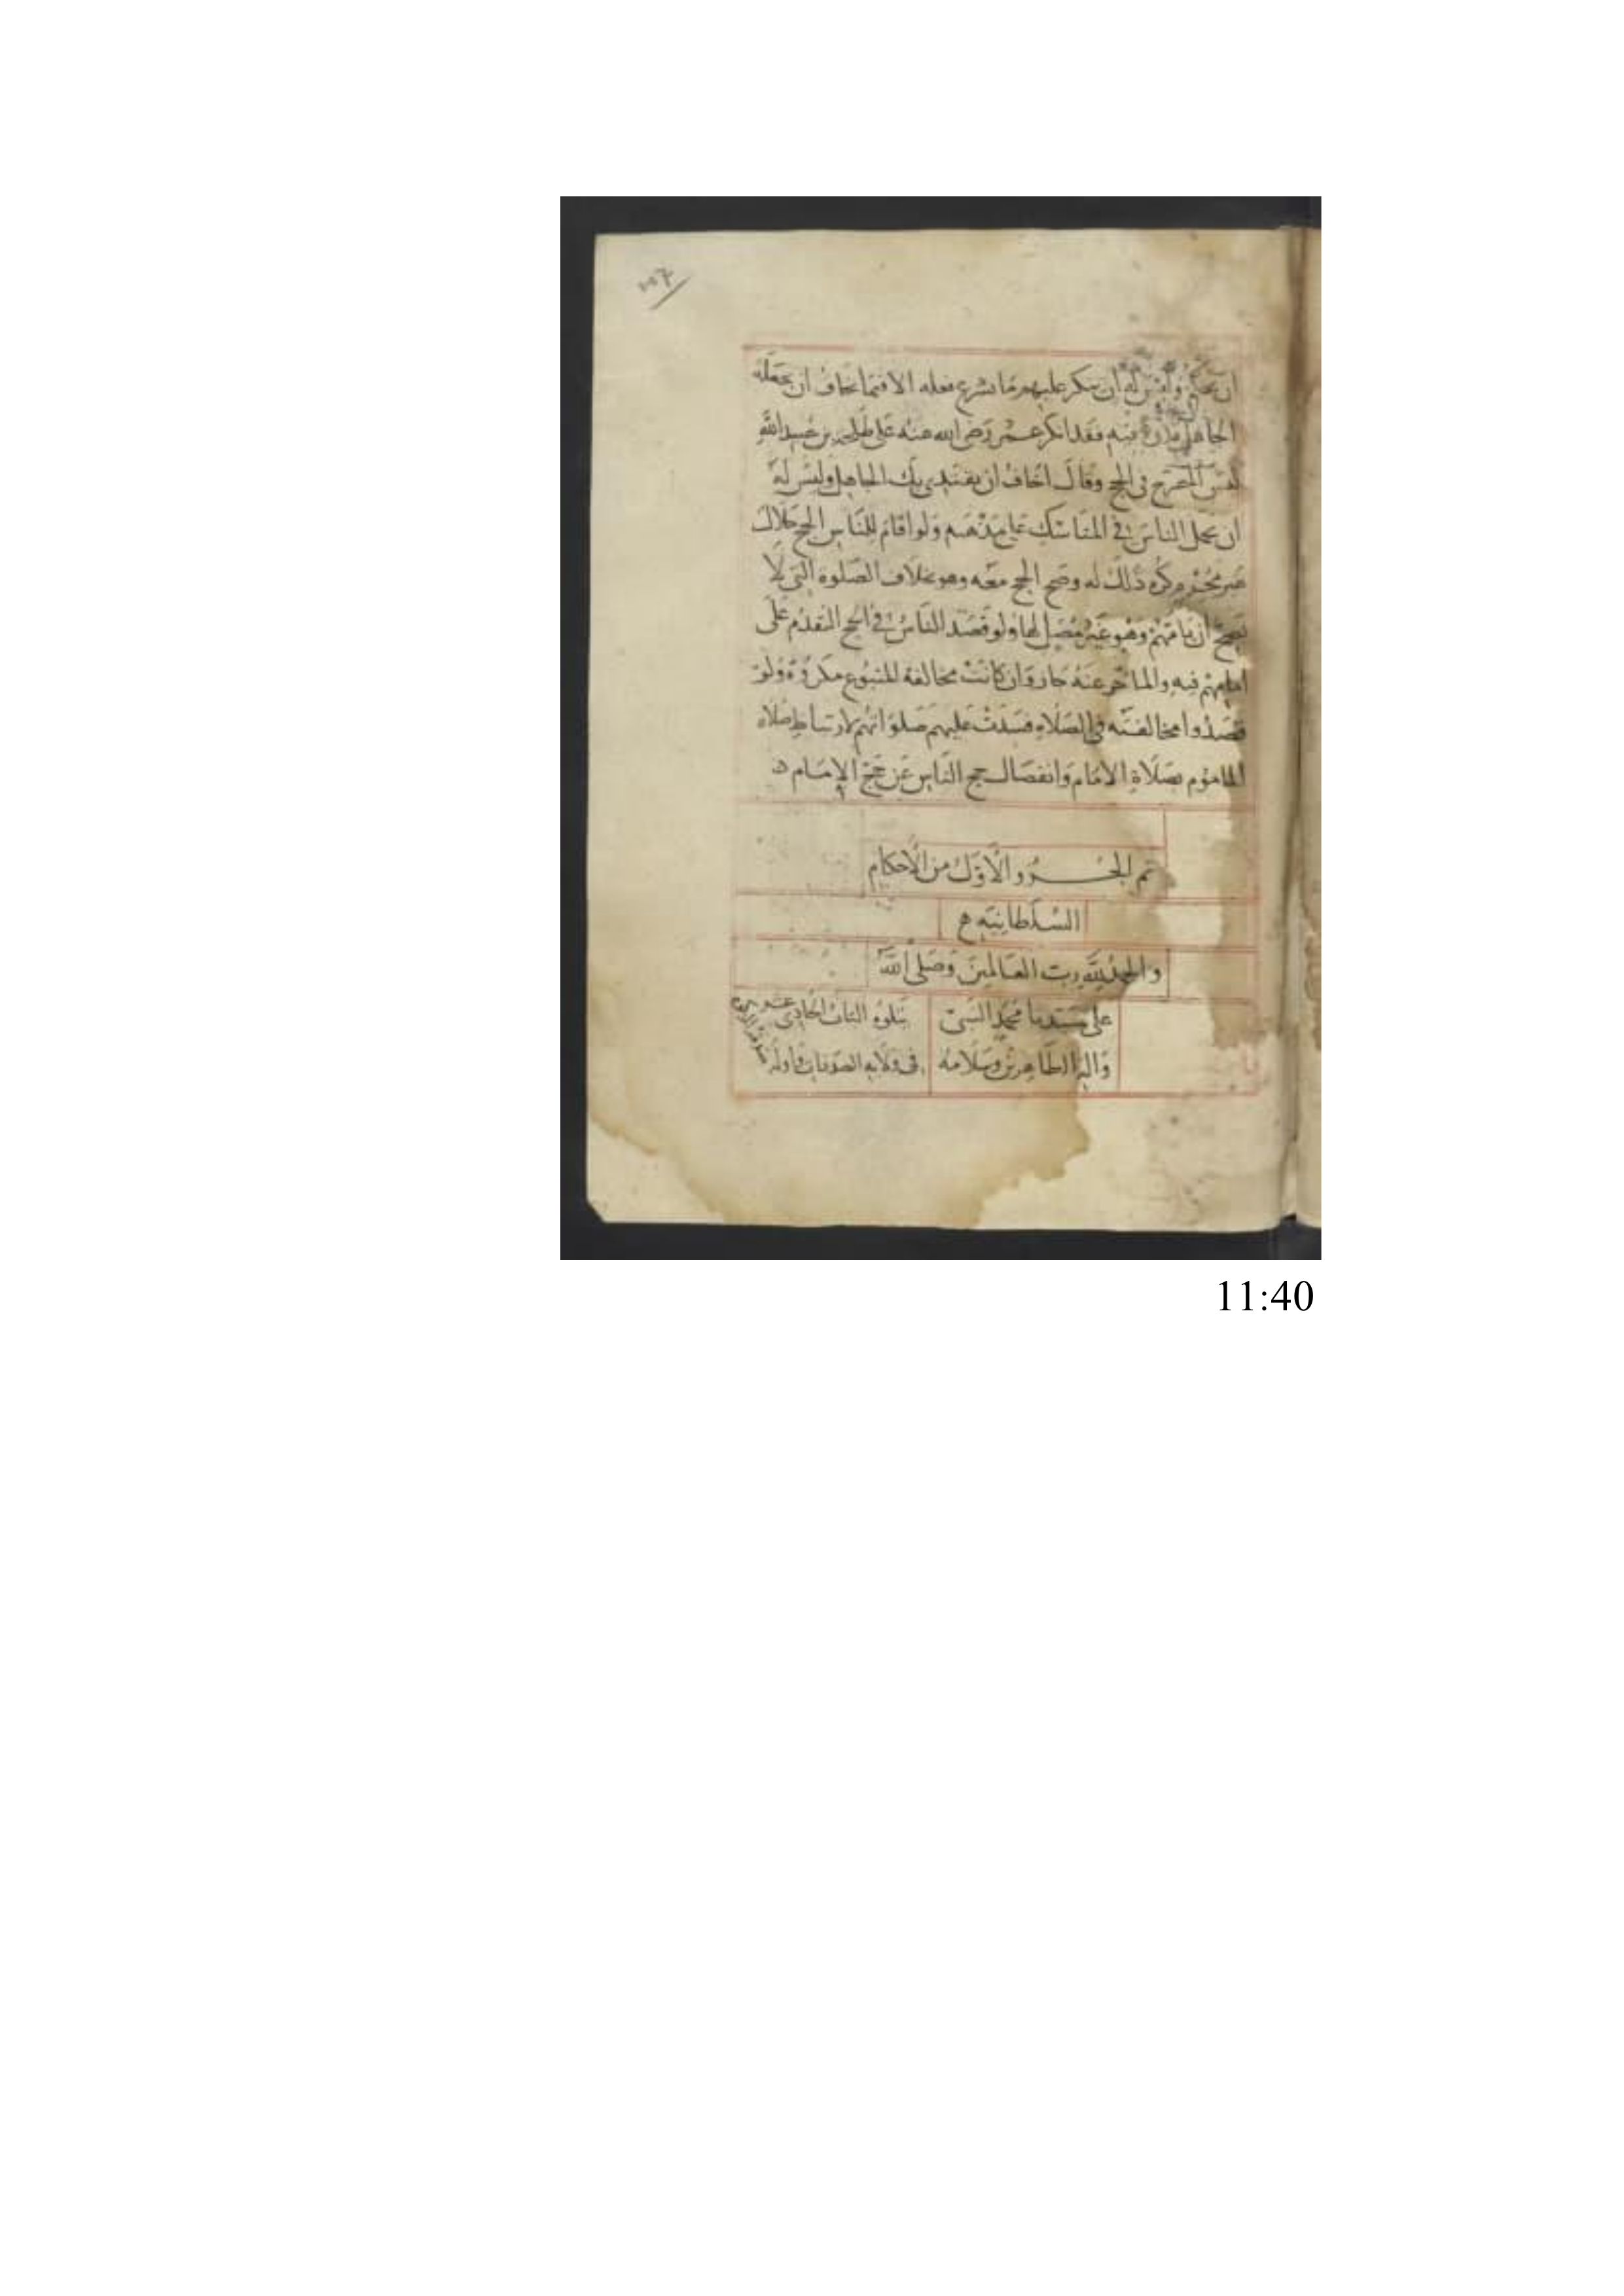 ان يحكم وليس له ان ينكر عليهم ما يسوغ فعله الا فيما يخاف ان يجعله
الجاهل قدوة فيه فقد انكر عمر رضي الله عنه على طلحة بن عبيد الله
لبس المضرج في الحج وقال اخاف ان يقتدي بك الجاهل وليس له
ان يحمل الناس في المناسك على مذهبه ولو اقام للناس الحج حلال
غير محرم كره ذلك له وصح الحج معه وهو بخلاف الصلوة التي لا
يصح ان يامهم وهو غير مصل لها ولو قصد الناس في الحج التقدم على
امامهم فيه والتاخر عنه جاز وان كانت مخالفة المتبوع مكروهة ولو
قصدوا مخالفته في الصلاة فسدت عليهم صلواتهم لارتباط صلاة
الماموم بصلاة الامام وانفصال حج الناس عن حج الامام ه
تم الجزو الاول من الاحكام
السلطانية
والحمد لله رب العالمين وصلى الله
على سيدنا محمد النبي
واله الطاهرين وسلامه
يتلوه الباب الحادي عشر
في ولاية الصدقات واوله
11:40